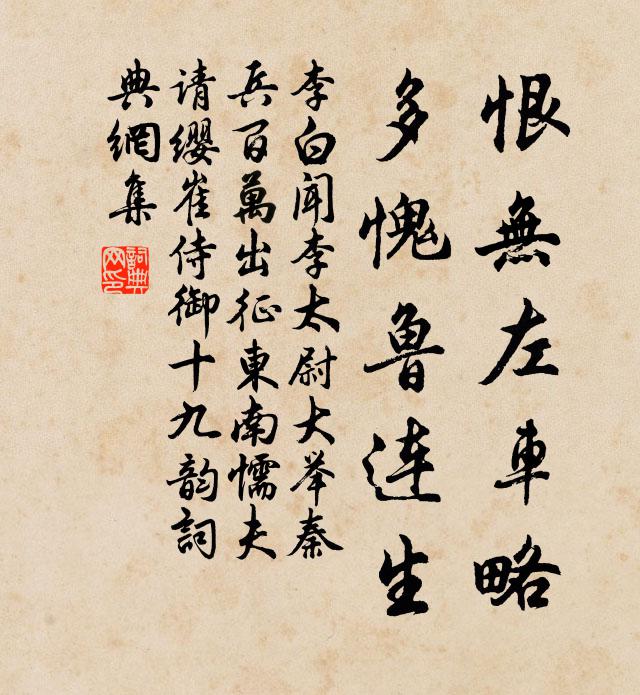 恨無左車略
多愧魯連生
李白聞李太尉大举秦
兵百萬出征東南懦夫
请纓崔侍御十九韵詞
典網集
詞典
网印